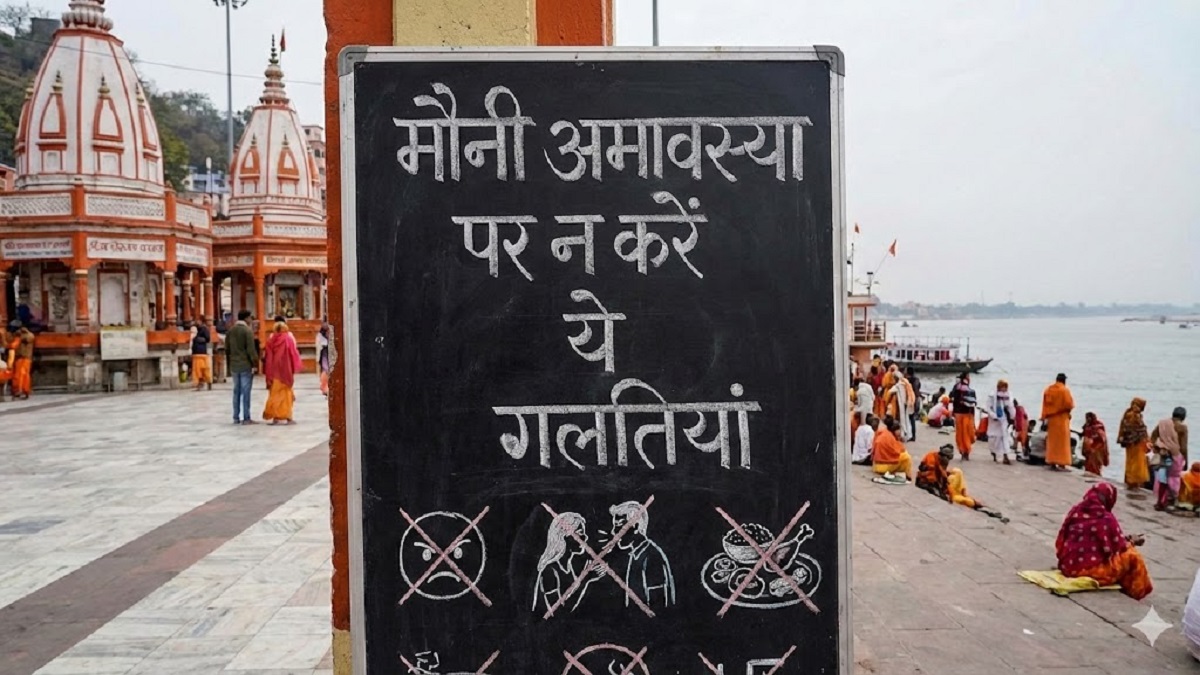 मौनी अमावस्या
पर न करें
ये
गलतियां